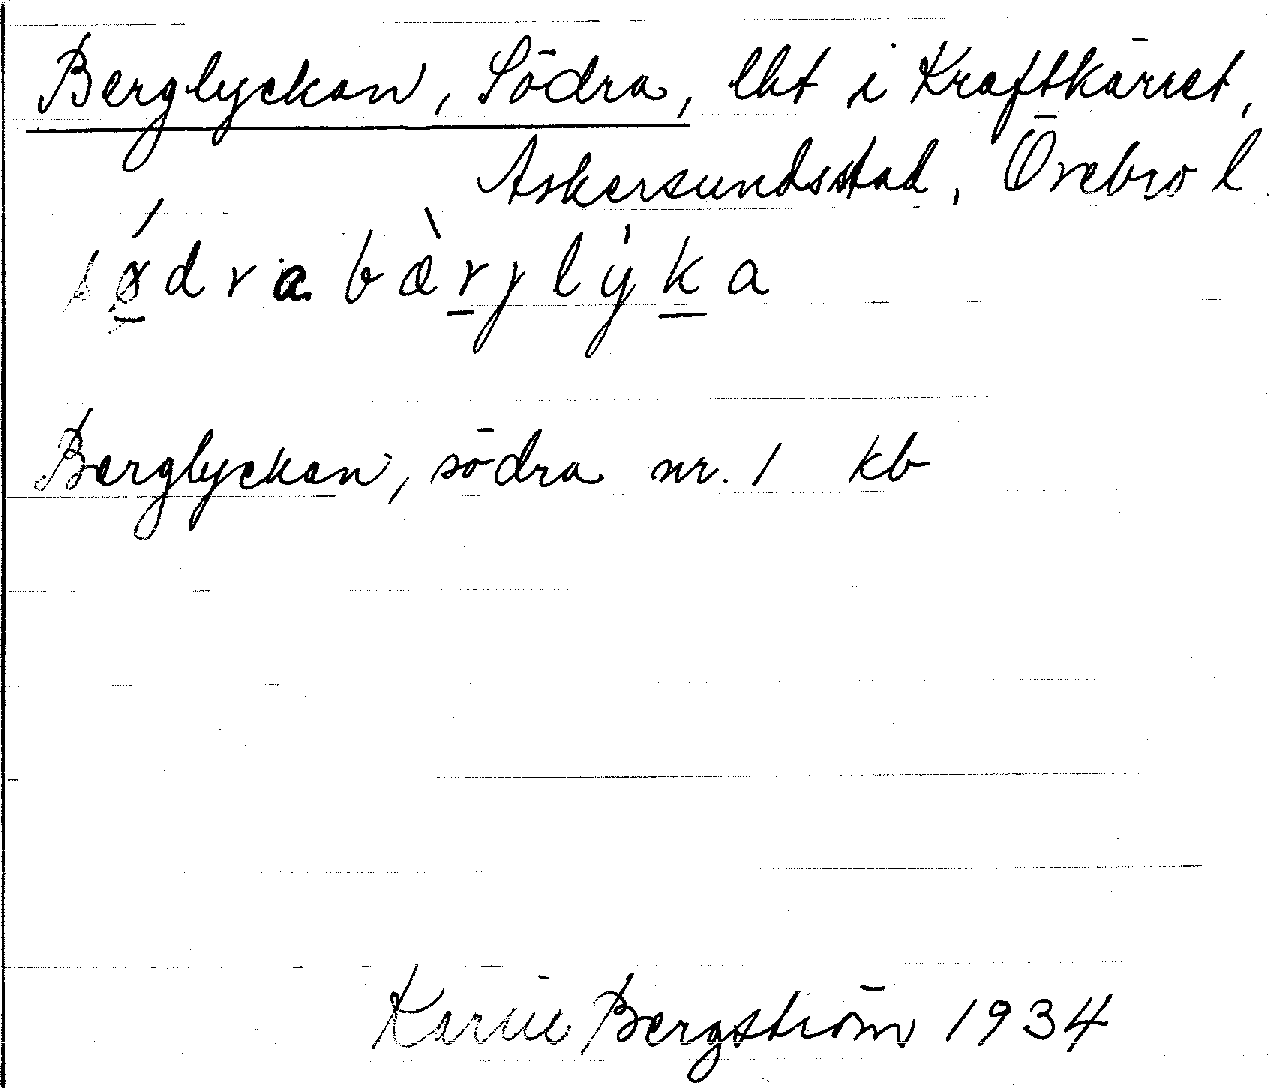 Berglyckan, Södra, lht i Kraftkärret,
Askersundsstad, Örebro l.
sǿdra bæ̀rjlỳka
Berglyckan, södra nr. 1 kb
Karin Bergström 1934